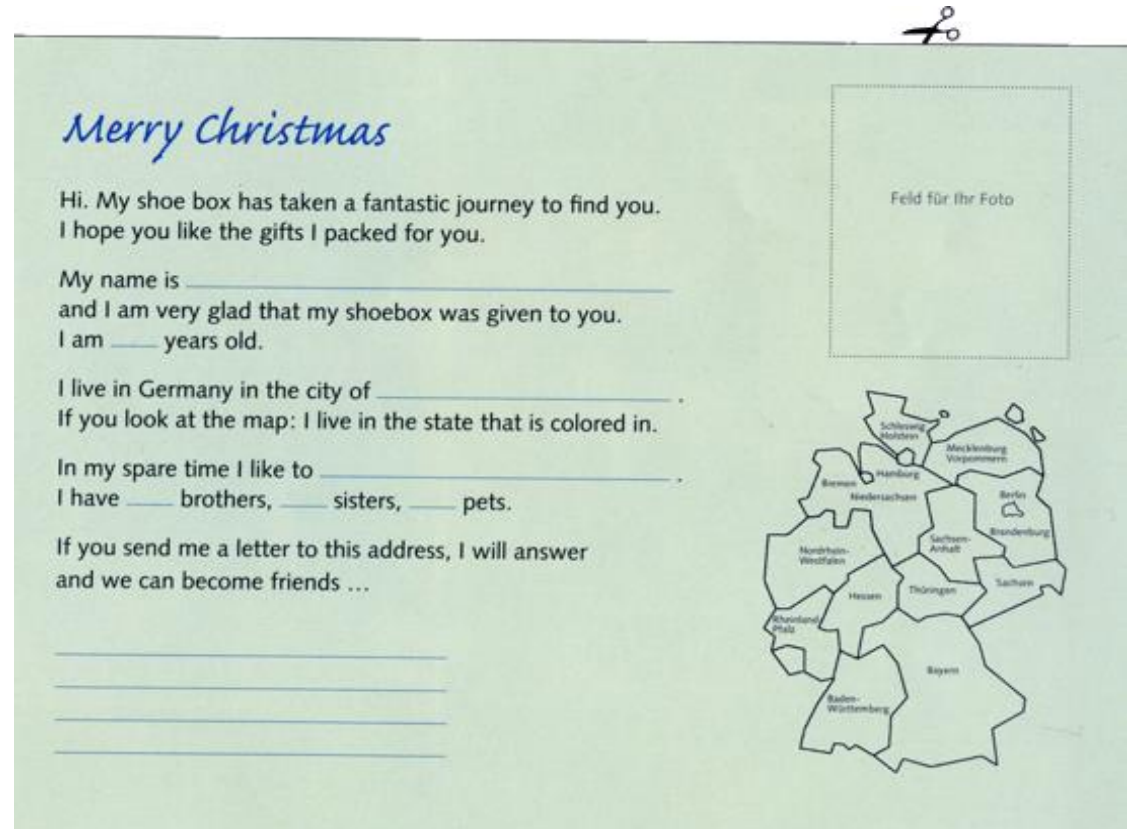 Merry Christmas
Hi. My shoe box has taken a fantastic journey to find you.
I hope you like the gifts I packed for you.
My name is
and I am very glad that my shoebox was given to you.
I am years old.
I live in Germany in the city of .
If you look at the map: I live in the state that is colored in.
In my spare time I like to .
I have brothers, sisters, pets.
If you send me a letter to this address, I will answer
and we can become friends ...
Feld für Ihr Foto
Schleswig
Holstein
Mecklenburg
Vorpommern
Hamburg
Bremen
Niedersachsen
Berlin
Brandenburg
Sachsen-
Anhalt
Nordrhein-
Westfalen
Sachsen
Thüringen
Hessen
Rheinland
Pfalz
Bayern
Baden-
Württemberg